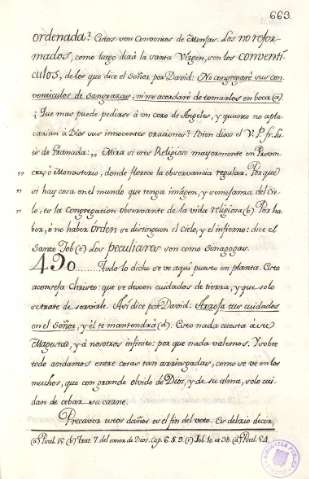 669
ordenada? Estas son Conventos de Monjas. Los no refor-
mados, como luego dirá la santa Virgen, son los conventí-
culos, de los que dice el Señor por David: No congregaré sus con-
ventículos de sangrazas; ni me acordaré de tomarlos en boca (a).
¿Que mas puede pedirse á un coro de Angeles, y quanto no apla-
carían á Dios sus innocentes oraciones? Bien dixo el V. P. fr. Lu-
is de Granada: „ Mira si eres Religioso mayormente en Provin-
cia, ó Monasterio, donde florece la observancia regular. Porque
„ si hay cosa en el mundo que tenga imágen, y semejanza del Cie-
„ lo, es la congregacion observante de la vida religiosa (b). Por ha-
ber, ó no haber orden se distinguen el Cielo, y el infierno: dice el
Santo Job (c). Los peculiares son como Sinagogas.
430 Todo lo dicho se ve aquí puesto en planta. Esto
aconseja Christo: que se dexen cuidados de tierra, y que solo
se trate de servirle. Así dice por David: Arroja tus cuidados
en el Señor, y él te mantendrá (d). Esto nada cuesta á su
Magestad, y á nosotros infinito: por que nada valemos. Y sobre
todo andamos entre cosas tan arriesgadas, como se ve en los
muchos, que con grande olvido de Dios, y de su alma, solo cui-
dan de cebar su carne.
Precaver estos daños es el fin del voto. Es delirio decir,
(a) Psal. 15. (b) Trat. 7. del amor de Dios. Cap. 6. § 3. (c) Job. 10. v. 22. (d) Psal. 54.